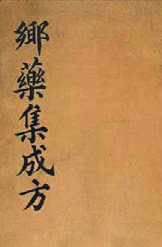 鄕藥集成方